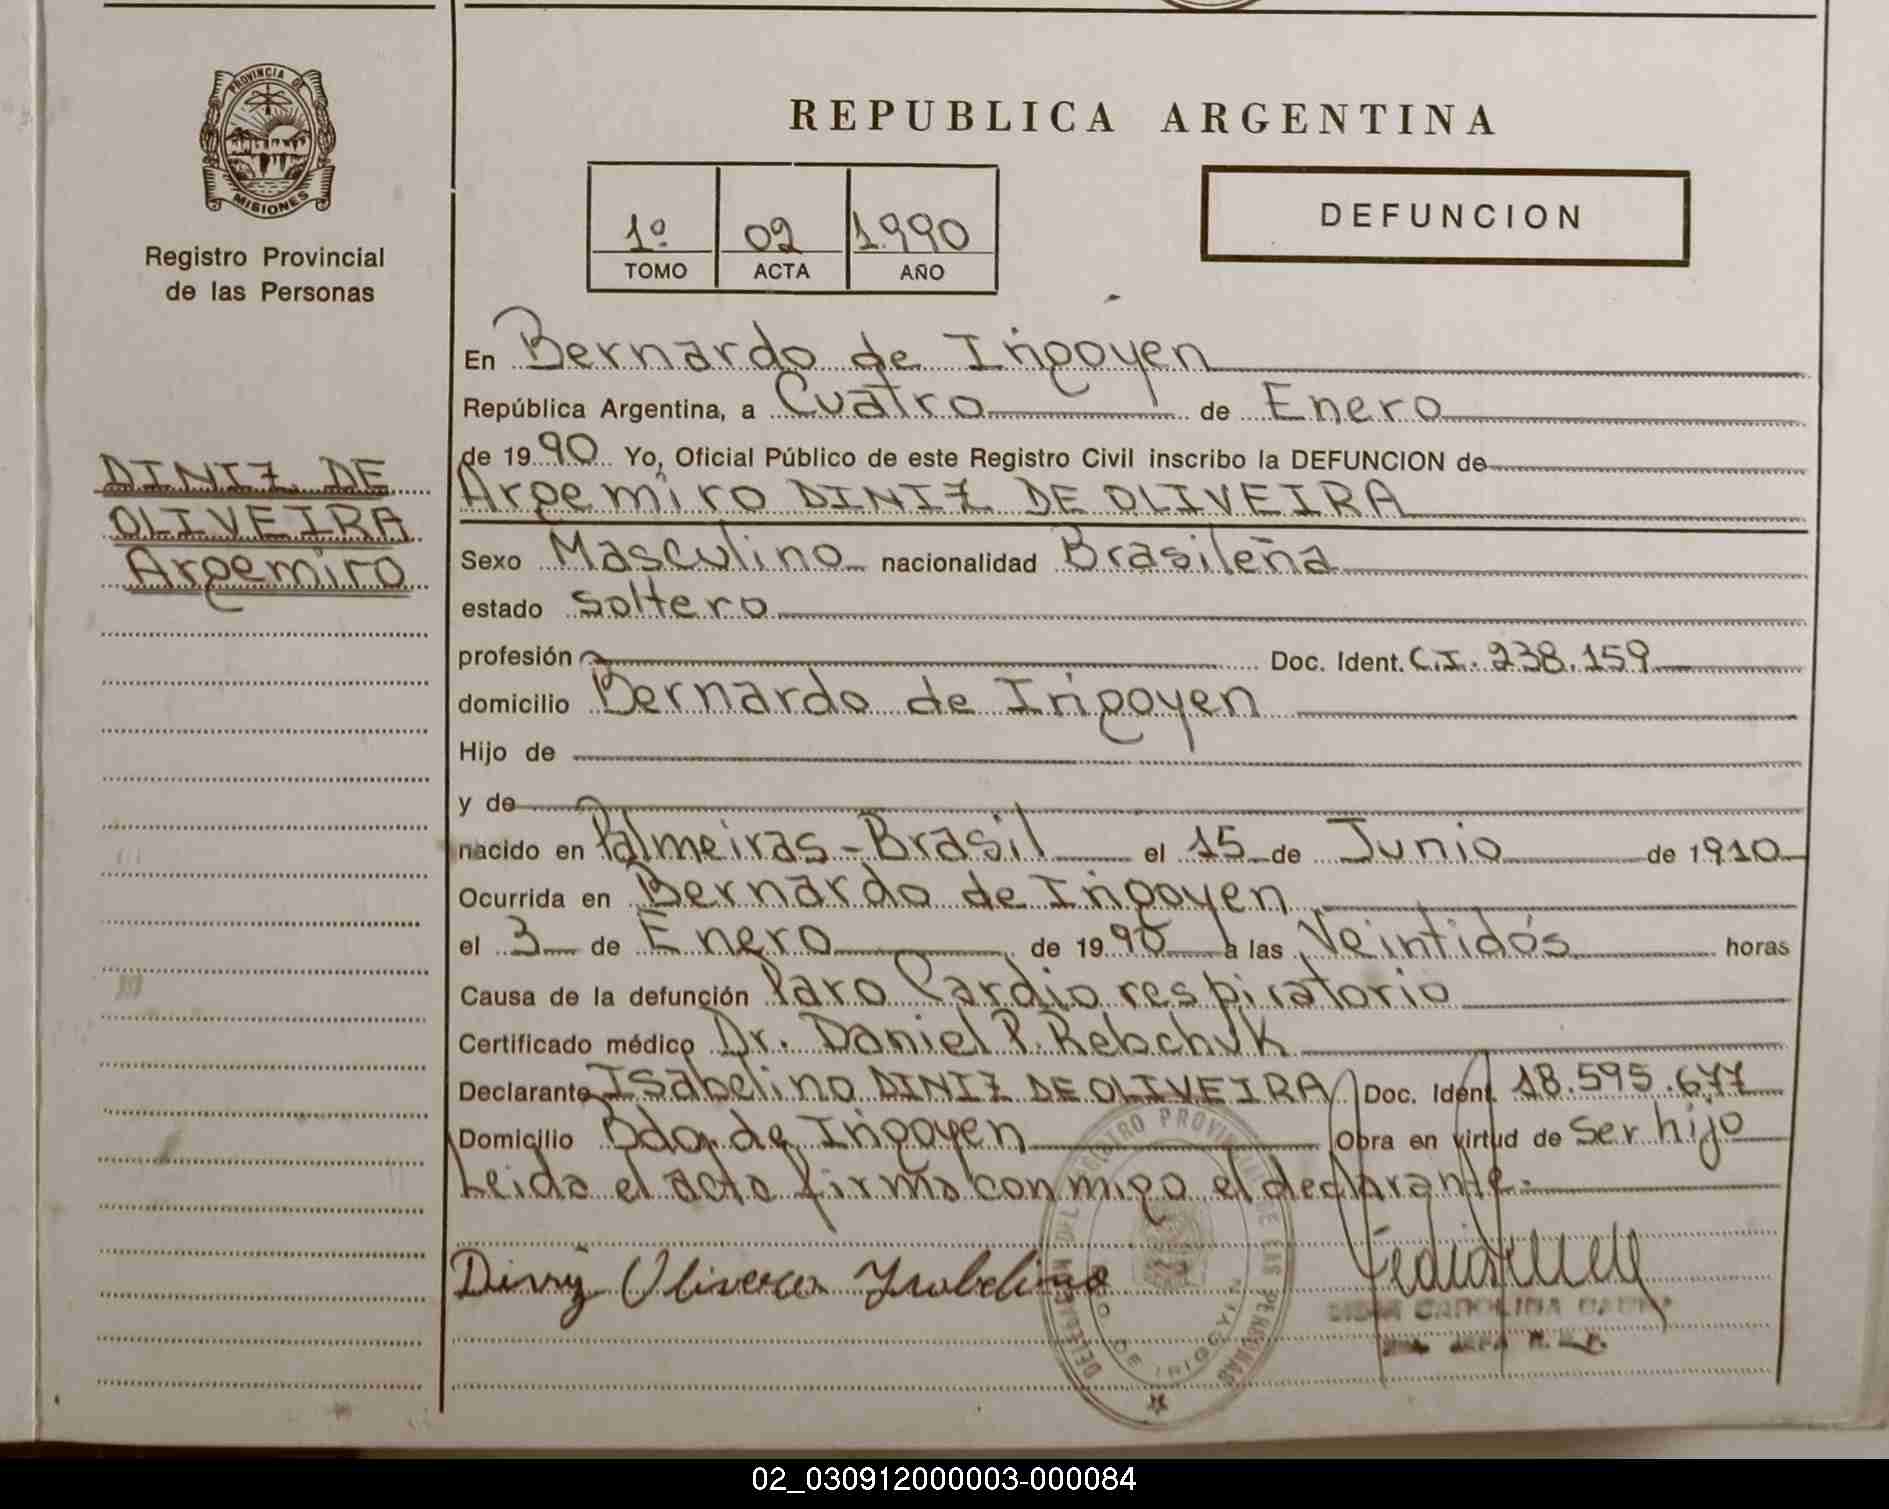 PROVINCIA DE
MISIONES
Registro Provincial
de las Personas
DINIZ DE
OLIVEIRA
Argemiro
REPUBLICA ARGENTINA
1º 02 1.990
TOMO ACTA AÑO
DEFUNCION
En Bernardo de Irigoyen
República Argentina, a Cuatro de Enero
de 1990 Yo, Oficial Público de este Registro Civil inscribo la DEFUNCION de
Argemiro DINIZ DE OLIVEIRA
Sexo Masculino nacionalidad Brasileña
estado soltero
profesión Doc. Ident. C.I. 238.159
domicilio Bernardo de Irigoyen
Hijo de
y de
nacido en Palmeiras-Brasil el 15 de Junio de 1910
Ocurrida en Bernardo de Irigoyen
el 3 de Enero de 1990 a las Veintidós horas
Causa de la defunción Paro Cardio respiratorio
Certificado médico Dr. Daniel P. Rebchuk
Declarante Isabelino DINIZ DE OLIVEIRA Doc. Ident. 18.595.677
Domicilio Bdo. de Irigoyen Obra en virtud de Ser hijo
Leida el acta firma conmigo el declarante.
Oliveira Isabelino
DELEGACION DEL REGISTRO PROVINCIAL DE LAS PERSONAS
DO DE IRIGOYEN
CAROLINA
02_030912000003-000084